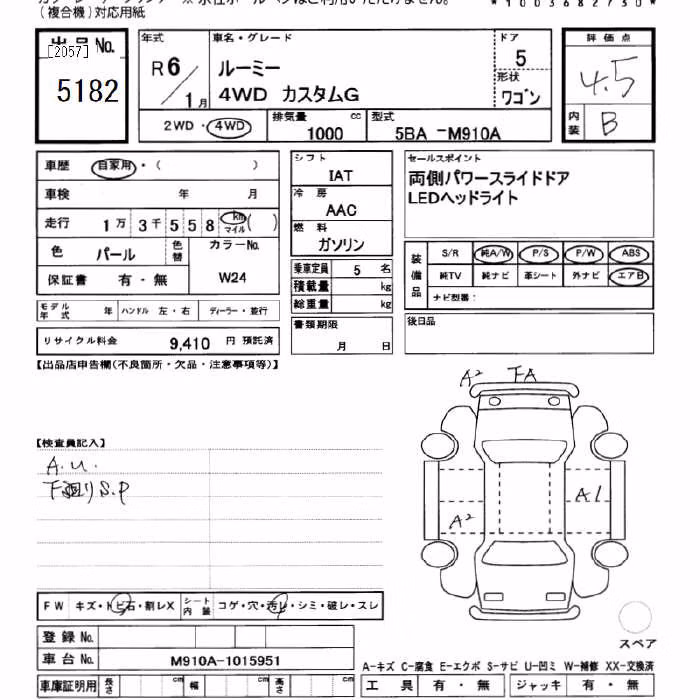 (複合機)対応用紙
*1003682730*
出品No.
[2057]
5182
年式 車名・グレード ドア
R6/1月 ルーミー 5
4WD カスタムG 形状 ワゴン
2WD・4WD 排気量 1000 cc 型式 5BA -M910A
評価点
4.5
内装 B
車歴 自家用・( )
車検 年 月
走行 1万3千558 km マイル ( )
色 パール 色替 カラーNo. W24
保証書 有・無
モデル年式 年 ハンドル 左・右 ディーラー・並行
リサイクル料金 9,410 円 預託済
シフト
IAT
冷房
AAC
燃料
ガソリン
乗車定員 5 名
積載量 kg
総重量 kg
書類期限
月 日
セールスポイント
両側パワースライドドア
LEDヘッドライト
装備品 S/R 純A/W P/S P/W ABS
純TV 純ナビ 革シート 外ナビ エアB
ナビ型番:
後日品
【出品店申告欄(不良箇所・欠品・注意事項等)】
A2 FA
【検査員記入】
A.U.
下廻りS.P
A1
A2
FW キズ・トビ石・割レX シート内装 コゲ・穴・汚レ・シミ・破レ・スレ
スペア
登録No.
車台No. M910A-1015951
車庫証明用 長さ cm 幅 cm 高さ cm
A-キズ C-腐食 E-エクボ S-サビ U-凹ミ W-補修 XX-交換済
工具 有・無 ジャッキ 有・無